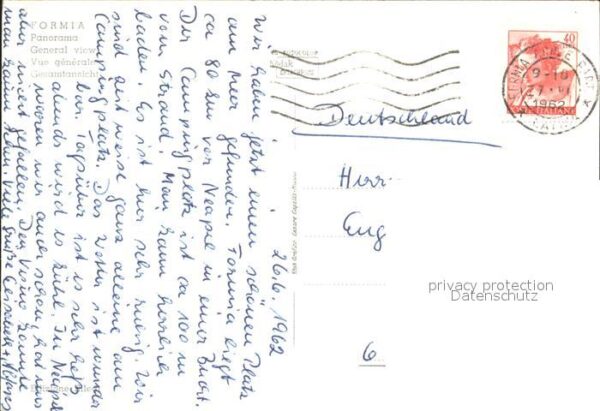 FORMIA
Panorama
General view
Vue générale
Gesamtansicht
26.6.1962
Wir haben jetzt einen schönen Platz
am Meer gefunden. Formia liegt
ca 80 km vor Neapel in einer Bucht.
Der Campingplatz ist ca 100 m
vom Strand. Man kann herrlich
baden. Es ist hier sehr ruhig. Wir
sind zeitweise ganz alleine am
Campingplatz. Das Wetter ist wunder
bar. Tagsüber ist es sehr heiß
abends wird es kühl. In Neapel
waren wir auch schon, hat uns
aber nicht gefallen. Den Vesuv konnte
man kaum sehn. Viele Grüße
40
POSTE ITALIANE
9-10
27
1962
LATINA
Deutschland
Herr
Eug
6
privacy protection
Datenschutz